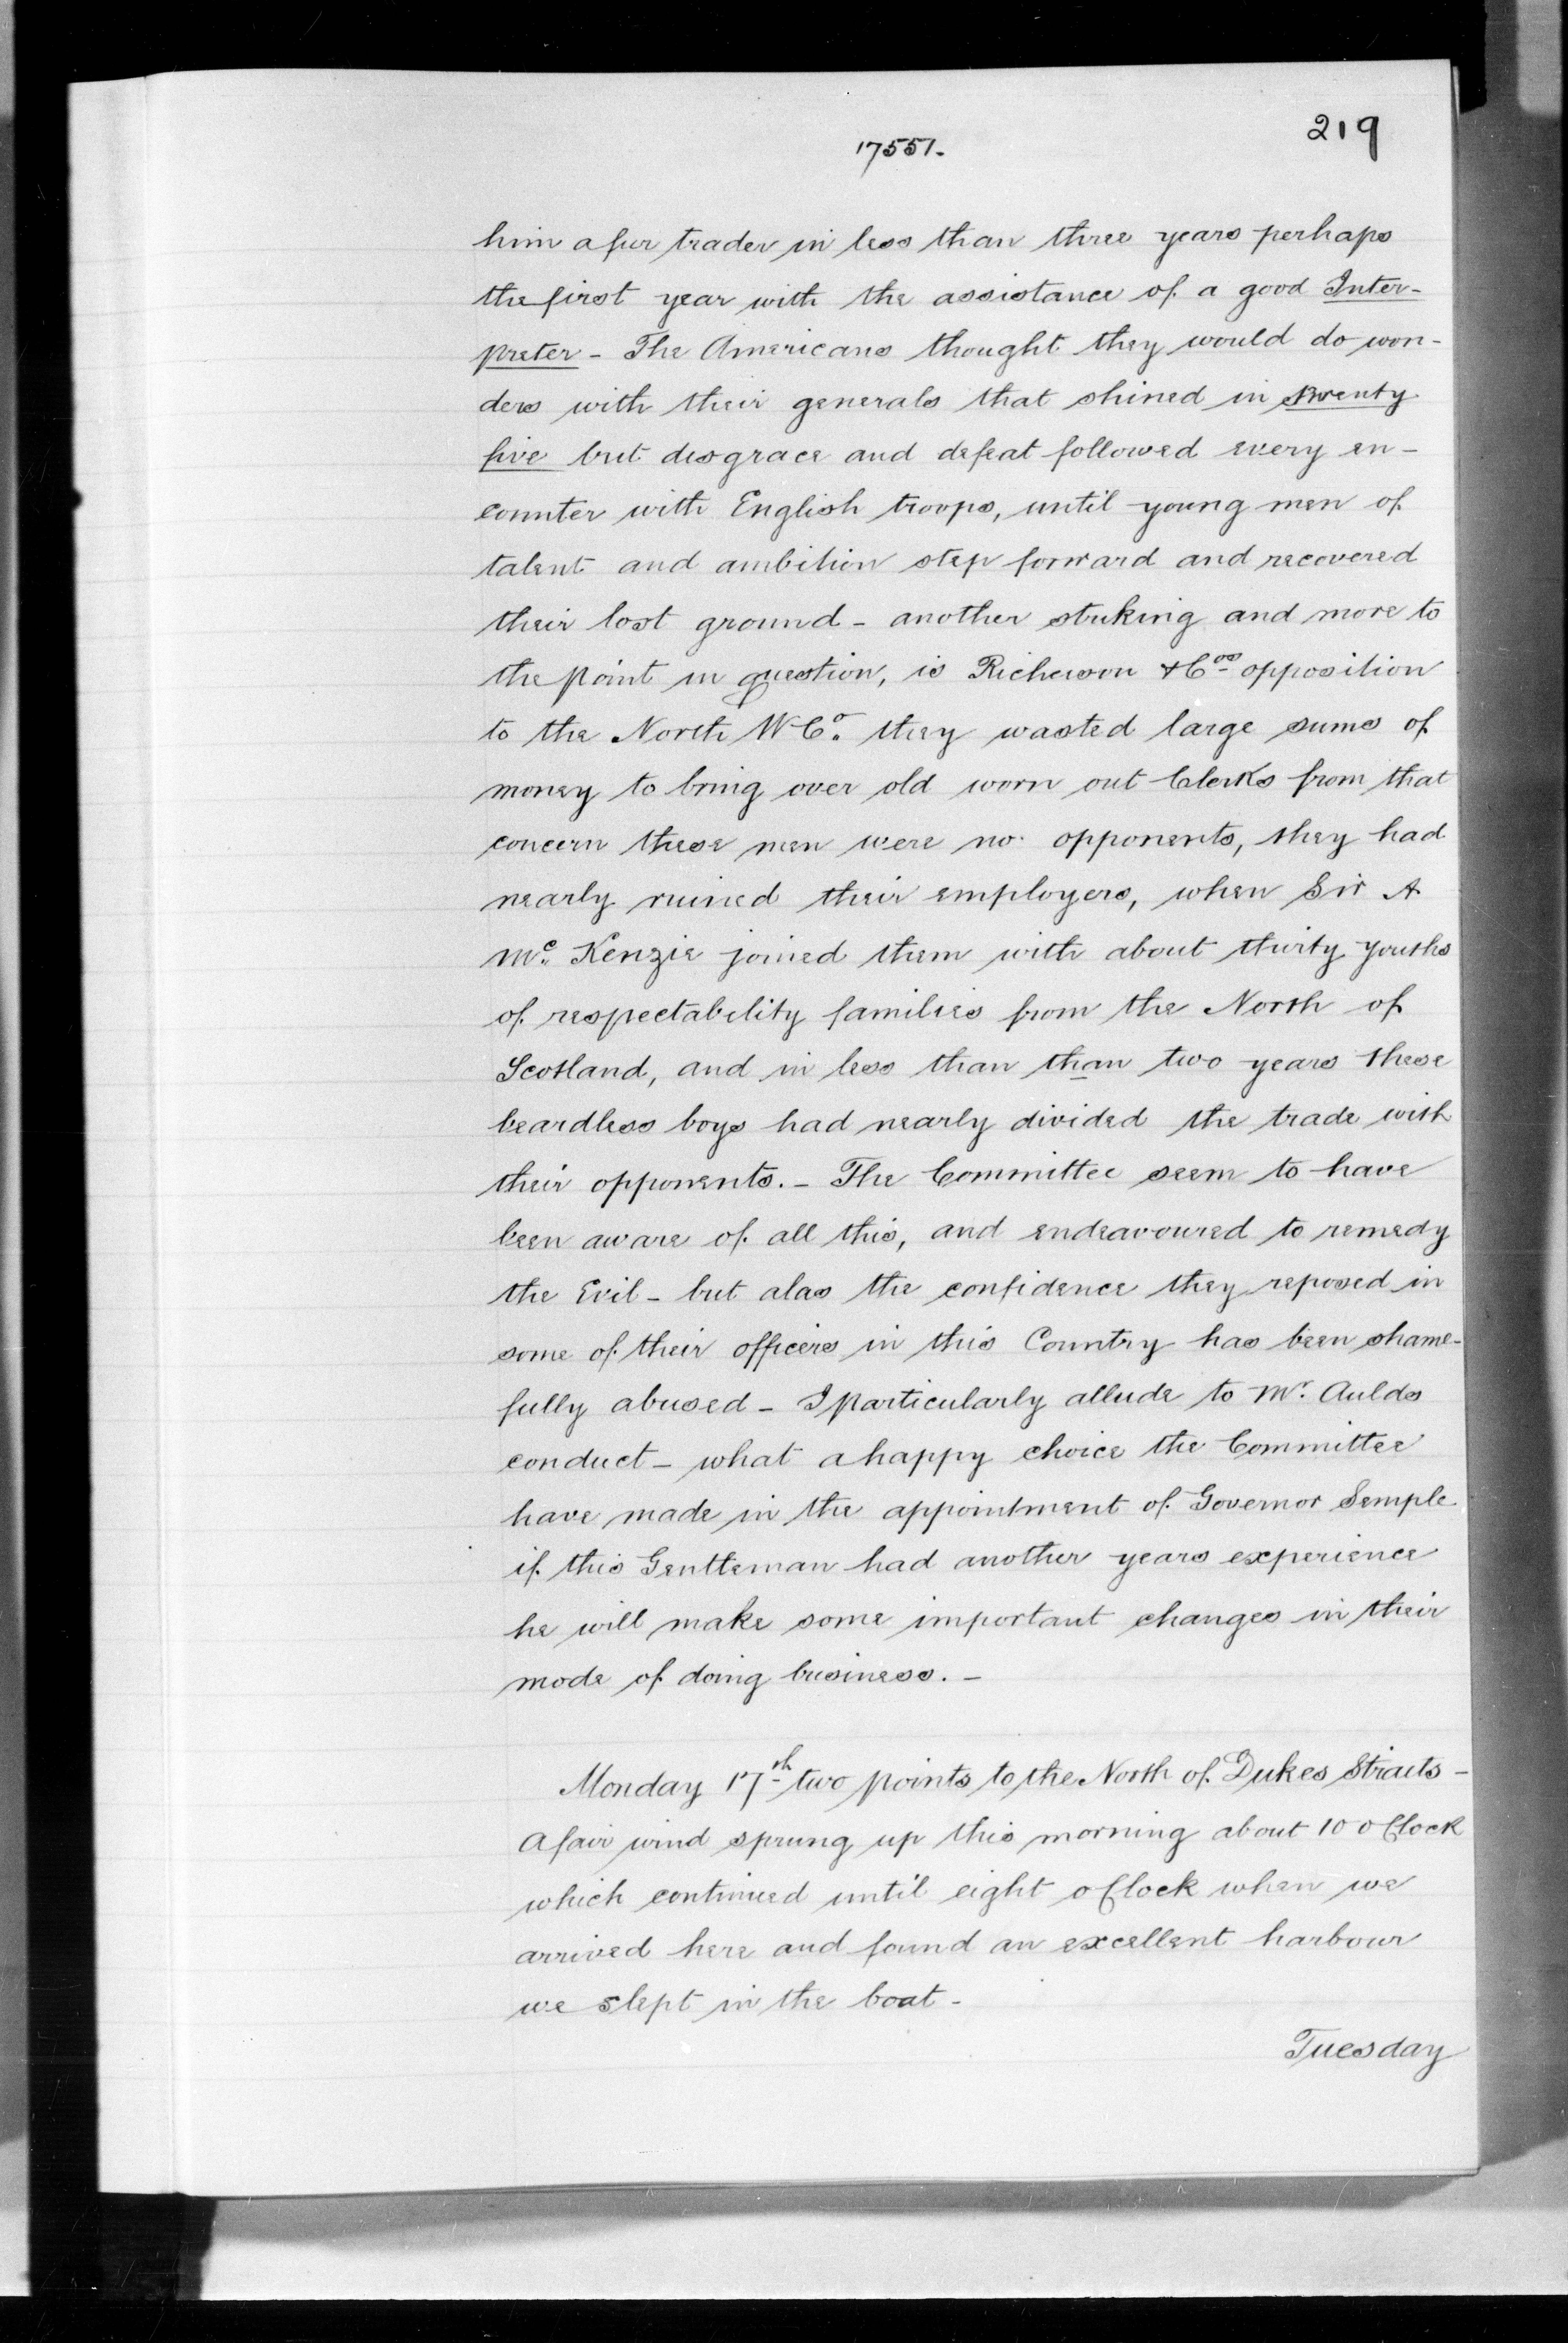 219
17551.
him a fur trader in less than three years perhaps
the first year with the assistance of a good Inter-
preter - The Americans thought they would do won-
ders with their generals that shined in twenty
five but disgrace and defeat followed every en-
counter with English troops, until young men of
talent and ambition step forward and recovered
their lost ground - another striking and more to
the point in question, is Richewon & Cos opposition
to the North W Co. they wasted large sums of
money to bring over old worn out Clerks from that
concern these men were no opponents, they had
nearly ruined their employers, when Sir A
Mc. Kenzie joined them with about thirty youths
of respectability families from the North of
Scotland, and in less than than two years these
beardless boys had nearly divided the trade with
their opponents. - The Committee seem to have
been aware of all this, and endeavoured to remedy
the Evil - but alas the confidence they reposed in
some of their officers in this Country has been shame-
fully abused - I particularly allude to Mr. Aulds
conduct - what a happy choice the Committee
have made in the appointment of Governor Semple
if this Gentleman had another years experience
he will make some important changes in their
mode of doing business. -
Monday 17th two points to the North of Dukes Straits -
A fair wind sprung up this morning about 10 oClock
which continued until eight oClock when we
arrived here and found an excellent harbour
we slept in the boat -
Tuesday